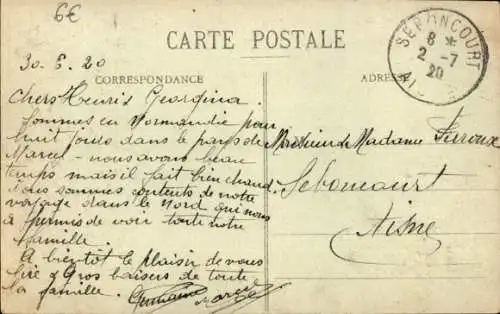 6€
CARTE POSTALE
30. 6. 20
CORRESPONDANCE
ADRESSE
SERANCOURT
8 *
2 -7
20
Chers Henris Georgina
Sommes en Normandie pour
huit jours dans le pays de
Marcel - nous avons beau
temps mais il fait bien chaud.
Nous sommes contents de notre
voyage dans le Nord qui nous
a permis de voir toute notre
famille.
A bientôt le plaisir de vous
lire & Gros baisers de toute
la famille.
Germaine Marcel
Monsieur & Madame
Seboncourt
Aisne